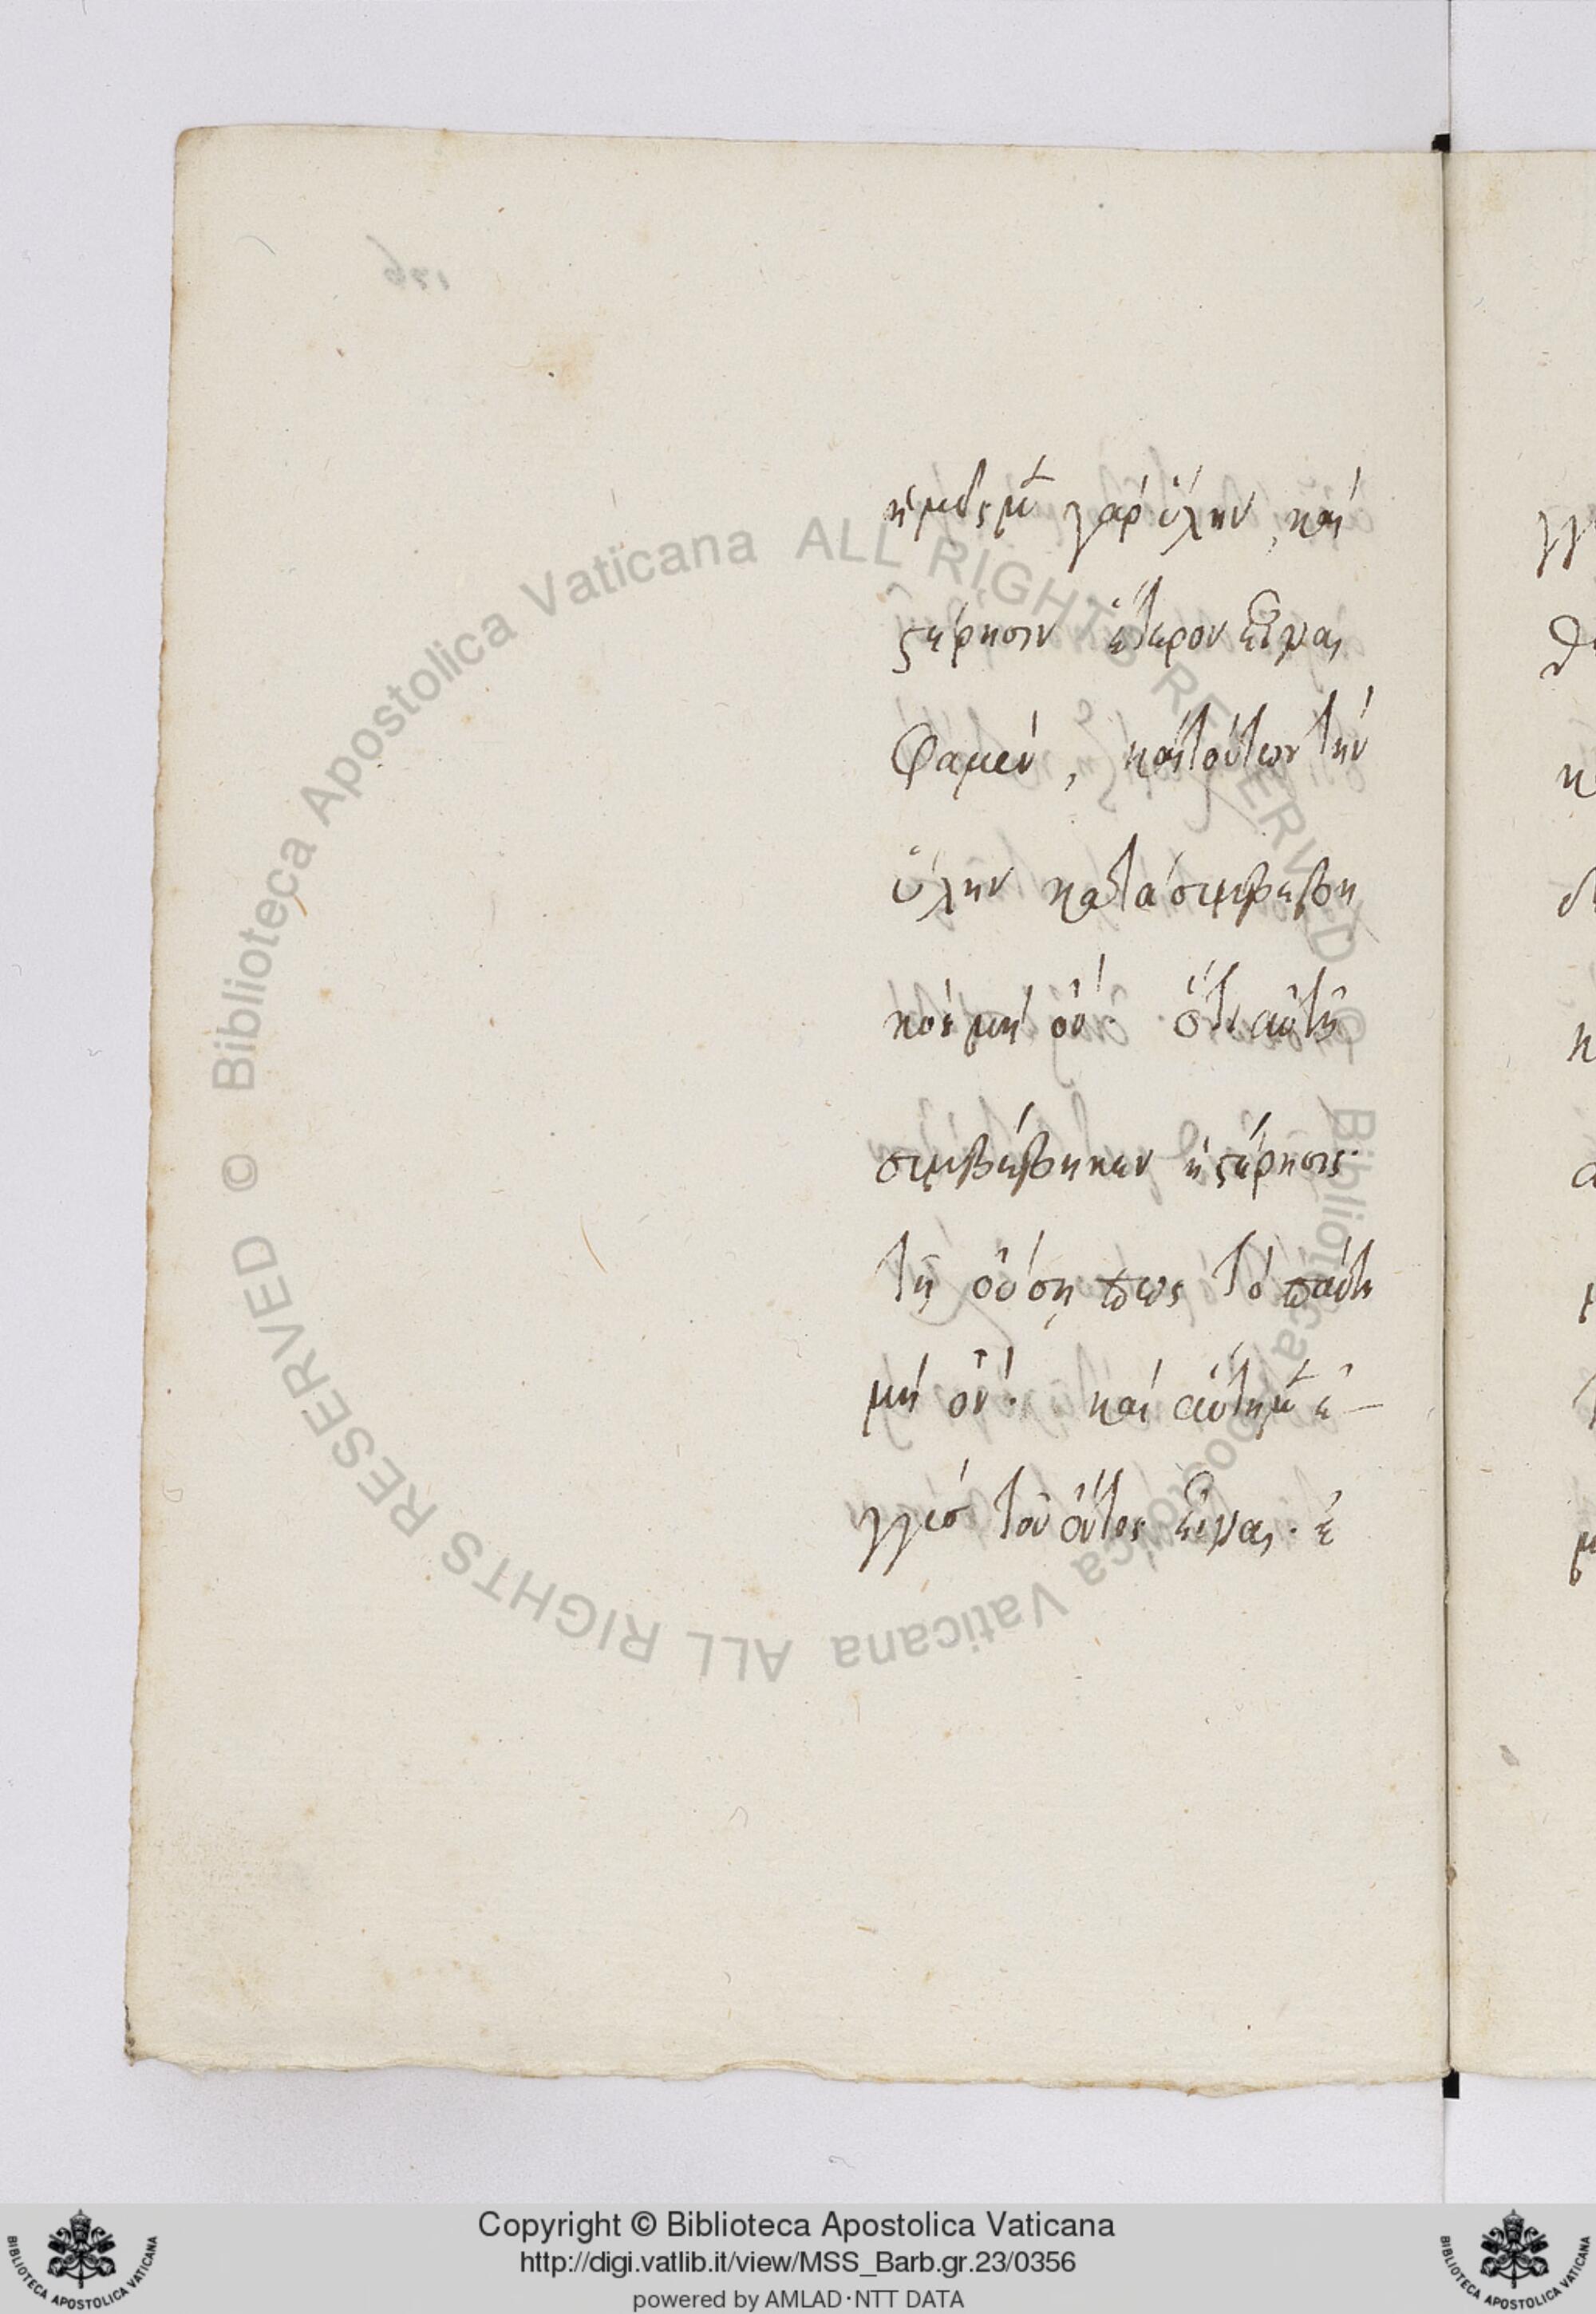 ἡμεῖς μὲν γὰρ ὕλην, καὶ
στέρησιν ἕτερον εἶναι
φαμὲν, καὶ τούτων τὴν
ὕλην κατὰ συμβεβη
κὸς μὴ ὂν· ὅτι αὐτῇ
συμβέβηκεν ἡ στέρησις·
τῇ οὔσῃ πως τὸ πάντη
μὴ ὂν· καὶ αὐτη μὲν ἐ-
γγὺσ τοῦ ὄντος εἶναι· ἐ
Copyright © Biblioteca Apostolica Vaticana
http://digi.vatlib.it/view/MSS_Barb.gr.23/0356
powered by AMLAD·NTT DATA
© Biblioteca Apostolica Vaticana ALL RIGHTS RESERVED © Biblioteca Apostolica Vaticana ALL RIGHTS RESERVED
BIBLIOTECA APOSTOLICA VATICANA
BIBLIOTECA APOSTOLICA VATICANA